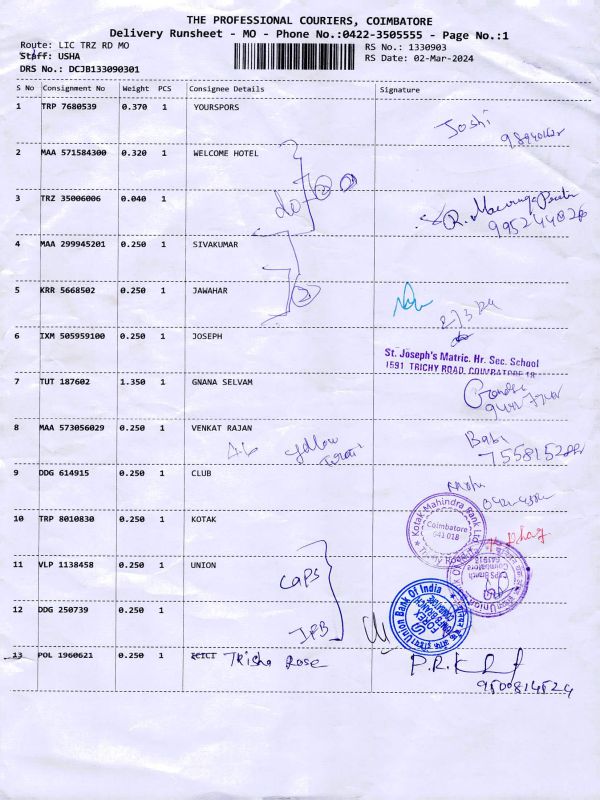 THE PROFESSIONAL COURIERS, COIMBATORE
Delivery Runsheet - MO - Phone No.:0422-3505555 - Page No.:1
Route: LIC TRZ RD MO RS No.: 1330903
Staff: USHA RS Date: 02-Mar-2024
DRS No.: DCJB133090301
S No Consignment No Weight PCS Consignee Details Signature
1 TRP 7680539 0.370 1 YOURSPORS
Joshi
2 MAA 571584300 0.320 1 WELCOME HOTEL
3 TRZ 35006006 0.040 1
do
9952244826
4 MAA 299945201 0.250 1 SIVAKUMAR
5 KRR 5668502 0.250 1 JAWAHAR
2
6 IXM 505959100 0.250 1 JOSEPH
St. Joseph's Matric. Hr. Sec. School
1591 TRICHY ROAD, COIMBATORE-18
7 TUT 187602 1.350 1 GNANA SELVAM
8 MAA 573056029 0.250 1 VENKAT RAJAN
Yellow
Babi
9 DDG 614915 0.250 1 CLUB
10 TRP 8010830 0.250 1 KOTAK
Kotak Mahindra Bank Ltd
Coimbatore
641 018
Trichy Road
11 VLP 1138458 0.250 1 UNION
CAPS
CAPS Branch
Coimbatore
641018
12 DDG 250739 0.250 1
IFB
Union Bank Of India
FOREX
COIMBATORE
13 POL 1960621 0.250 1 ICICI Trisha Rose
P.R.K
9500814524